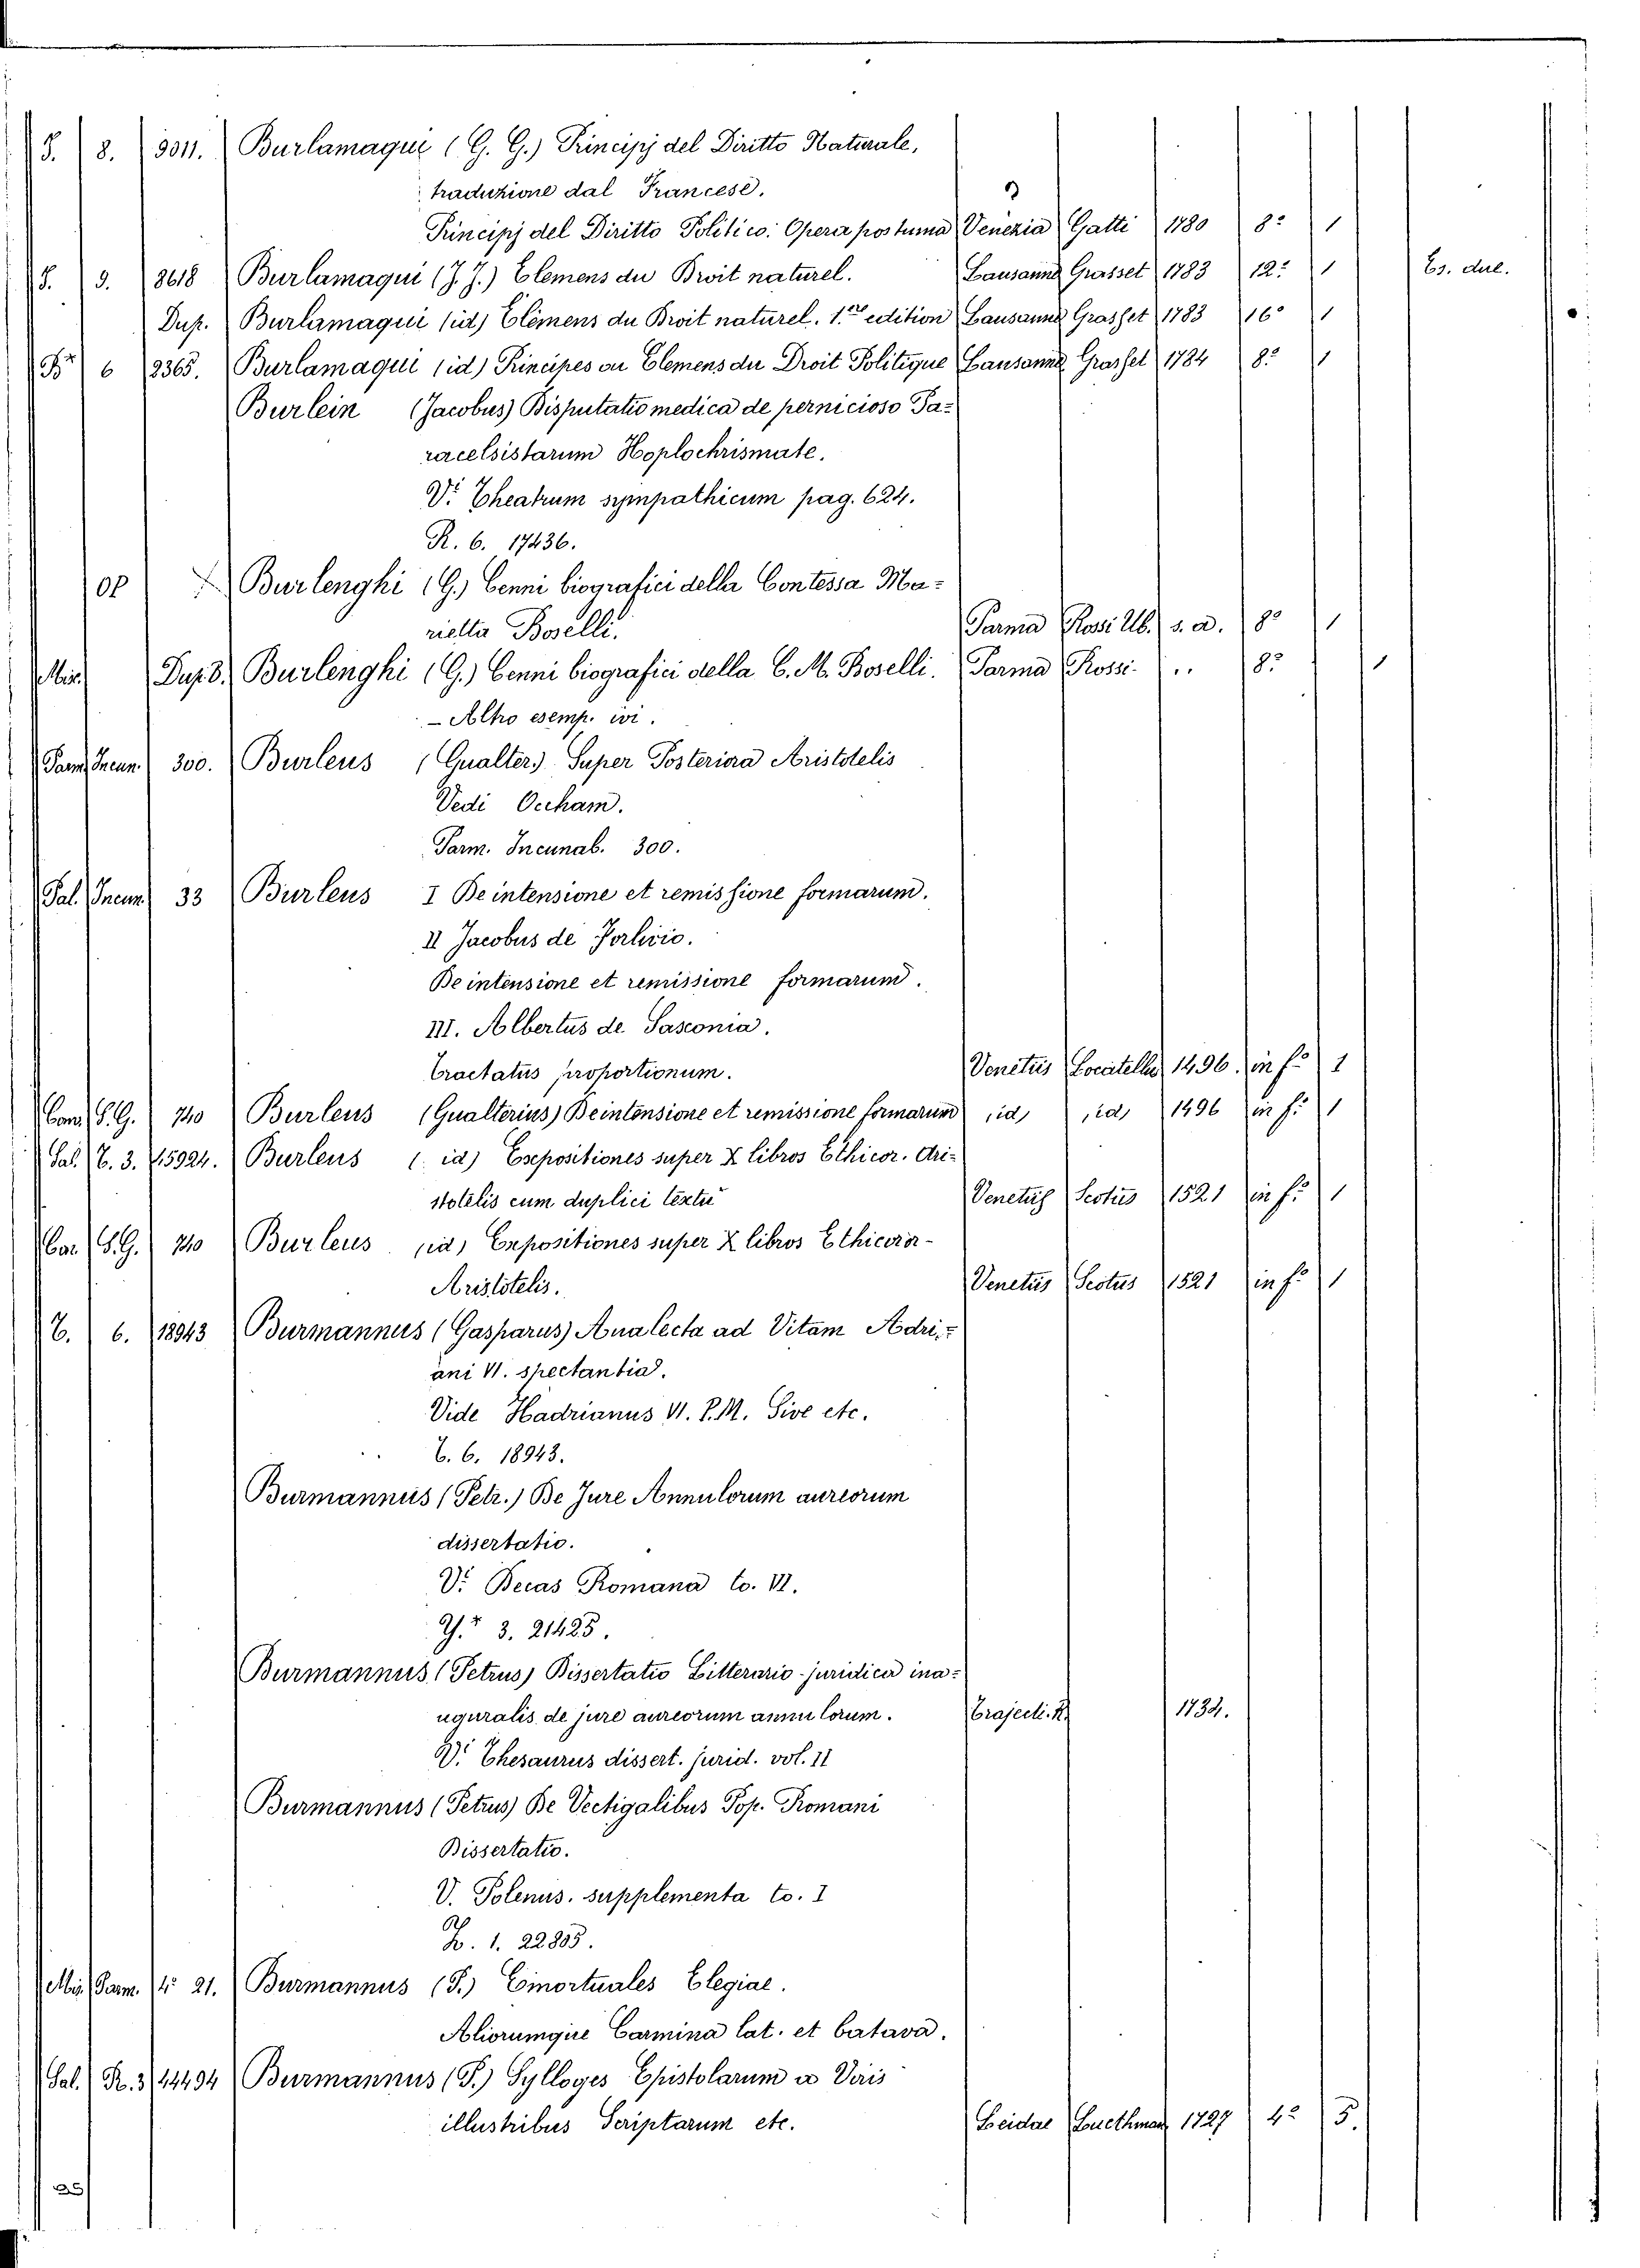 S. 8. 3011. Burlamaqui (G. G.) Principj del Diritto Naturale,
traduzione dal Francese.
Principj del Diritto Politico: Opera postuma Venezia Gatti 1780 8º 1
S. 9. 3618 Burlamaqui (J. J.) Elemens du Droit naturel. Lausanne Grasset 1783 12º 1 Es. dul.
Dup. Burlamaqui (id) Elémens du Droit naturel. 1.re edition Lausanne Grasset 1783 16º 1
6 2365. Burlamaqui (id) Principes ou Elemens du Droit Politique Lausanne Grasset 1784 8º 1
Burlein (Jacobus) Disputatio medica de pernicioso Pa-
racelsistarum Hoplochrismate.
V. Theatrum sympathicum pag. 624.
R. 6. 17436.
OP Burlenghi (G.) Cenni biografici della Contessa Ma-
rietta Boselli. Parma Rossi Ub. s. a. 8º 1
Mis. Dup.o Burlenghi (G.) Cenni biografici della C. M. Boselli. Parma Rossi .. 8º 1
- Altro esemp. ivi.
Parm. Incun. 300. Burleus (Gualter) Super Posteriora Aristotelis
Vedi Occham.
Parm. Incunab. 300.
Pal. Incun. 33 Burleus I De intensione et remissione formarum.
II Jacobus de Forlivio.
De intensione et remissione formarum.
III. Albertus de Sasconia.
Tractatus proportionum. Venetiis Locatellus 1496. in fº 1
Cam. S.G. 740 Burleus (Gualterius) De intensione et remissione formarum (id) (id) 1496 in fº 1
Sal. C. 3. 15924. Burleus (id) Espositiones super X libros Ethicor. Ari-
stotelis cum duplici textu Venetiis Scotus 1521 in fº 1
Car. S.G. 740 Burleus (id) Expositiones super X libros Ethicoror
Aristotelis. Venetiis Scotus 1521 in fº 1
C. 6. 18943 Burmannus (Gasparus) Analecta ad Vitam Adri-
ani VI. spectantia.
Vide Hadrianus VI. P. M. Sive etc.
C. 6. 18943.
Burmannus (Petr.) De Jure Annulorum aureorum
dissertatio.
V. Decas Romana to. VI.
3. 21425.
Burmannus (Petrus) Dissertatio Litterario-juridica ina-
uguralis de jure aureorum annulorum. Trajecti. R. 1734.
V. Thesaurus dissert. jurid. vol. II
Burmannus (Petrus) De Vectigalibus Pop. Romani
Dissertatio.
V. Polenus. supplementa to. I
1. 22805.
Mis. Parm. 4º 21. Burmannus (P.) Emortuales Elegiae.
Aliorumque Carmina lat. et batava.
Sal. R. 3 14494 Burmannus (P.) Sylloges Epistolarum a Viris
illustribus Scriptarum etc. Leidae Luchtmans 1727 4º 5.